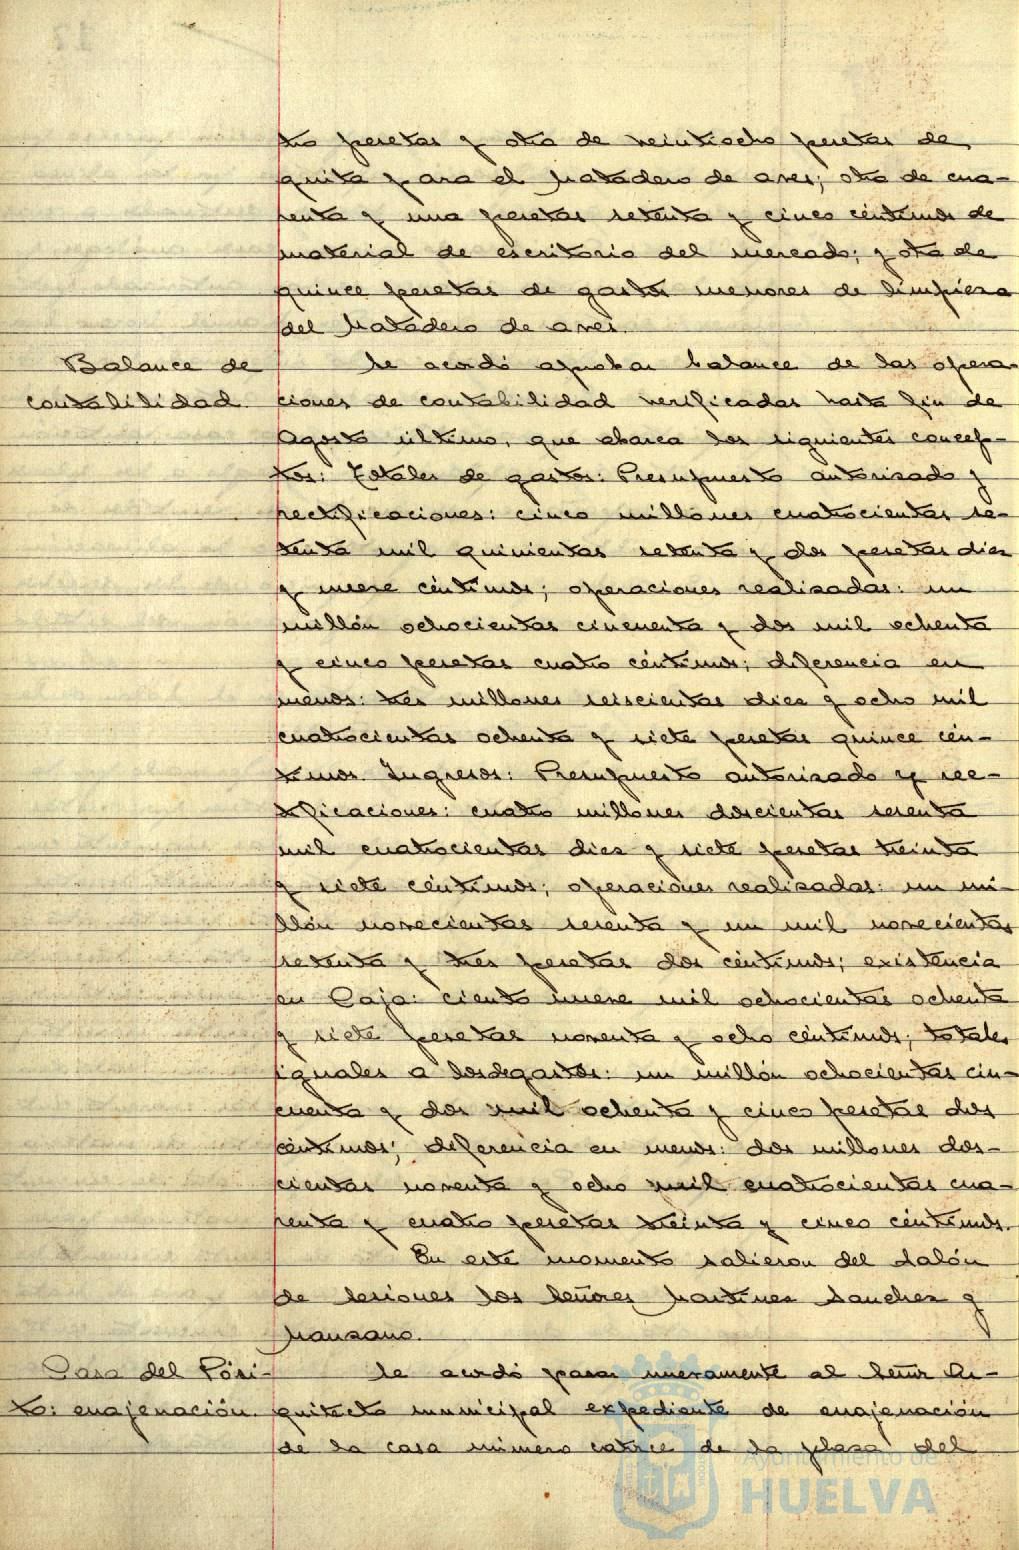 tro pesetas y otra de veintiocho pesetas de
guita para el Matadero de aves; otra de cua-
renta y una pesetas setenta y cinco céntimos de
material de escritorio del mercado; y otra de
quince pesetas de gastos menores de limpieza
del Matadero de aves.
Balance de
contabilidad.
Se acordó aprobar balance de las opera-
ciones de contabilidad verificadas hasta fin de
Agosto último, que abarca los siguientes concep-
tos: Totales de gastos: Presupuesto autorizado y
rectificaciones: cinco millones cuatrocientas se-
tenta mil quinientas setenta y dos pesetas diez
y nueve céntimos; operaciones realizadas: un
millón ochocientas cincuenta y dos mil ochenta
y cinco pesetas cuatro céntimos; diferencia en
menos: tres millones seiscientas diez y ocho mil
cuatrocientas ochenta y siete pesetas quince cén-
timos. Ingresos: Presupuesto autorizado y rec-
tificaciones: cuatro millones doscientas sesenta
mil cuatrocientas diez y siete pesetas treinta
y siete céntimos; operaciones realizadas: un mi-
llón novecientas sesenta y un mil novecientas
setenta y tres pesetas dos céntimos; existencia
en Caja: ciento nueve mil ochocientas ochenta
y siete pesetas noventa y ocho céntimos; totales
iguales a los de gastos: un millón ochocientas cin-
cuenta y dos mil ochenta y cinco pesetas dos
céntimos; diferencia en menos: dos millones dos-
cientas noventa y ocho mil cuatrocientas cua-
renta y cuatro pesetas treinta y cinco céntimos.
En este momento salieron del Salón
de Sesiones los Señores Martínez Sanchez y
Manzano.
Casa del Pósi-
to: enajenación.
Se acordó pasar nuevamente al Señor Ar-
quitecto municipal expediente de enajenación
de la casa número catorce de la plaza del
Ayuntamiento de
HUELVA